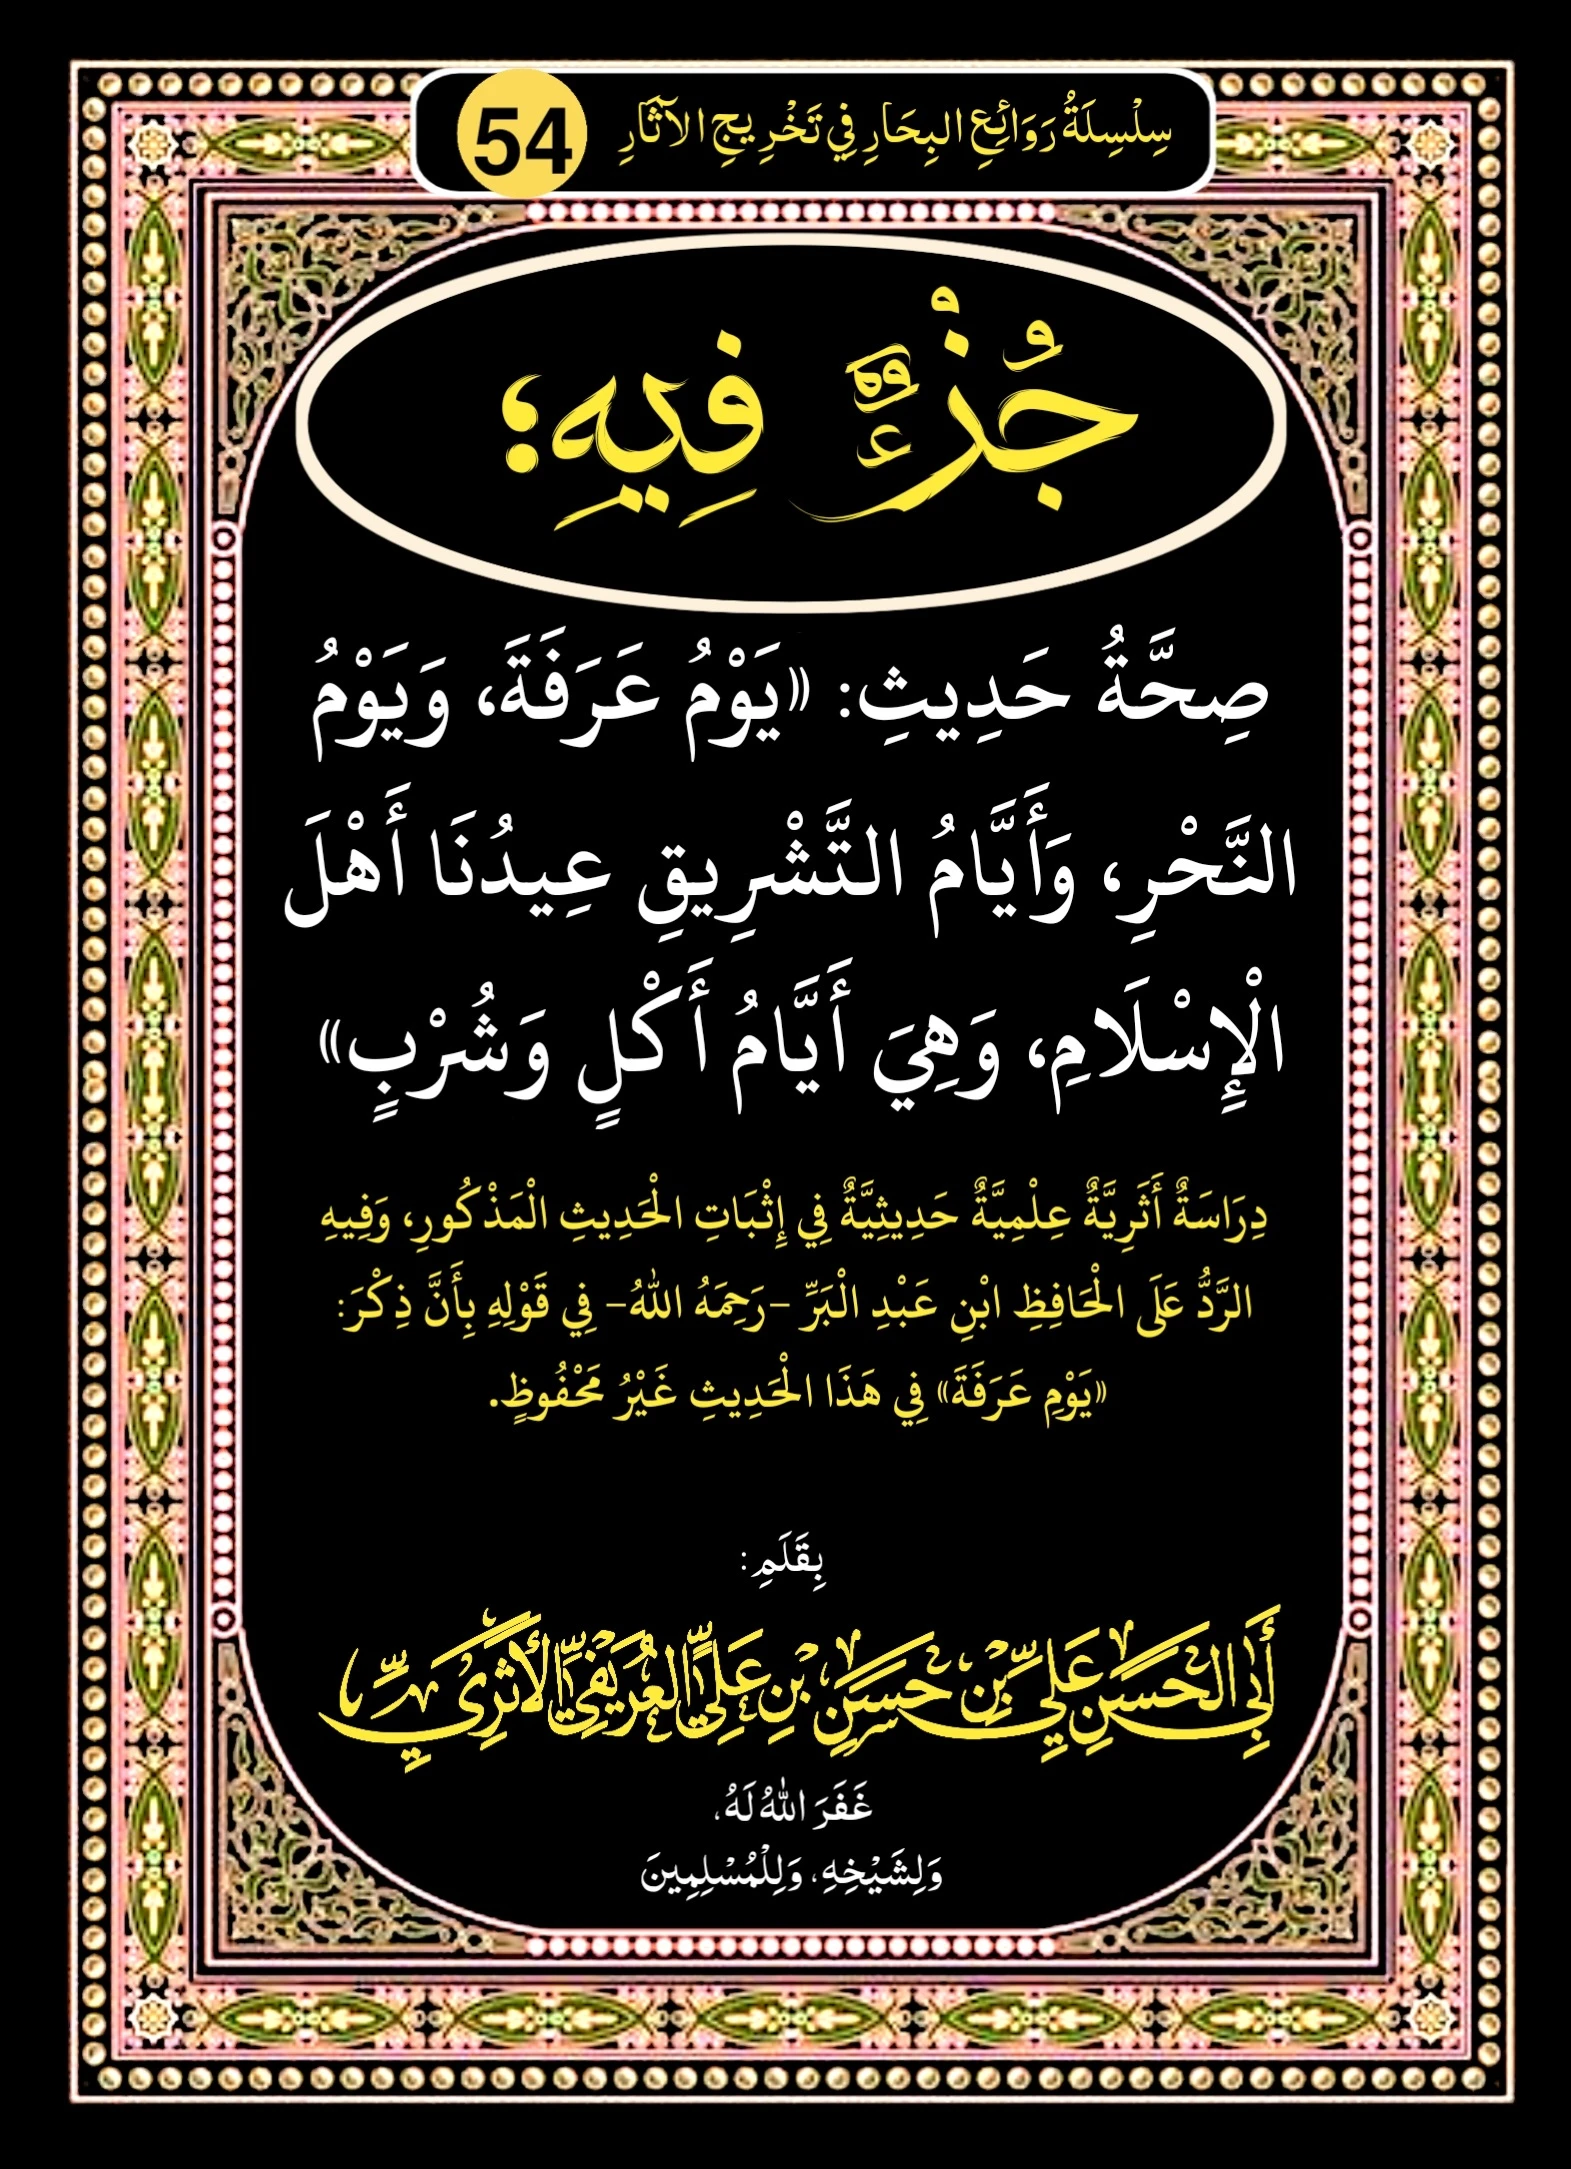 سِلْسِلَةُ رَوَائِعِ البِحَارِ فِي تَخْرِيجِ الآثَارِ 54
جُزْءٌ فِيهِ؛
صِحَّةُ حَدِيثِ: «يَوْمُ عَرَفَةَ، وَيَوْمُ
النَّحْرِ، وَأَيَّامُ التَّشْرِيقِ عِيدُنَا أَهْلَ
الْإِسْلَامِ، وَهِيَ أَيَّامُ أَكْلٍ وَشُرْبٍ»
دِرَاسَةٌ أَثَرِيَّةٌ عِلْمِيَّةٌ حَدِيثِيَّةٌ فِي إِثْبَاتِ الْحَدِيثِ الْمَذْكُورِ، وَفِيهِ
الرَّدُّ عَلَى الْحَافِظِ ابْنِ عَبْدِ الْبَرِّ -رَحِمَهُ اللهُ- فِي قَوْلِهِ بِأَنَّ ذِكْرَ:
«يَوْمِ عَرَفَةَ» فِي هَذَا الْحَدِيثِ غَيْرُ مَحْفُوظٍ.
بِقَلَمِ:
أَبِي الْحَسَنِ عَلِيِّ بْنِ حَسَنِ بْنِ عَلِيٍّ الْعُرَيْفِيِّ الْأَثَرِيِّ
غَفَرَ اللهُ لَهُ،
وَلِشَيْخِهِ، وَلِلْمُسْلِمِينَ